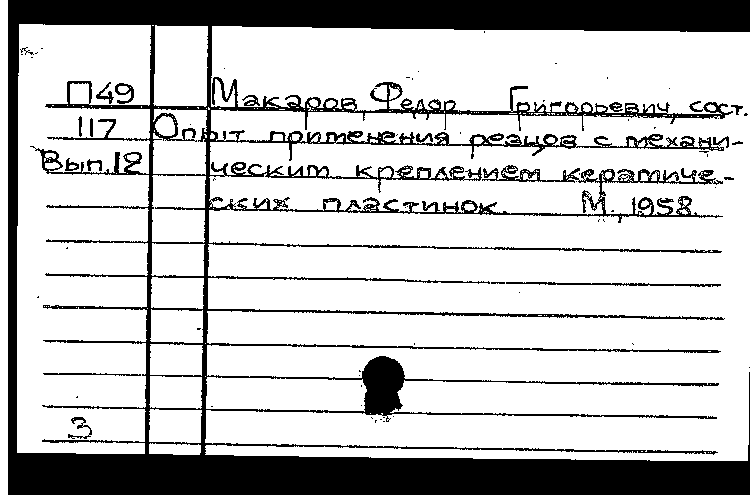 П49 Макаров, Федор Григорьевич, сост.
117 Опыт применения резцов с механи-
Вып.12 ческим креплением керамиче-
ских пластинок. М., 1958.
3